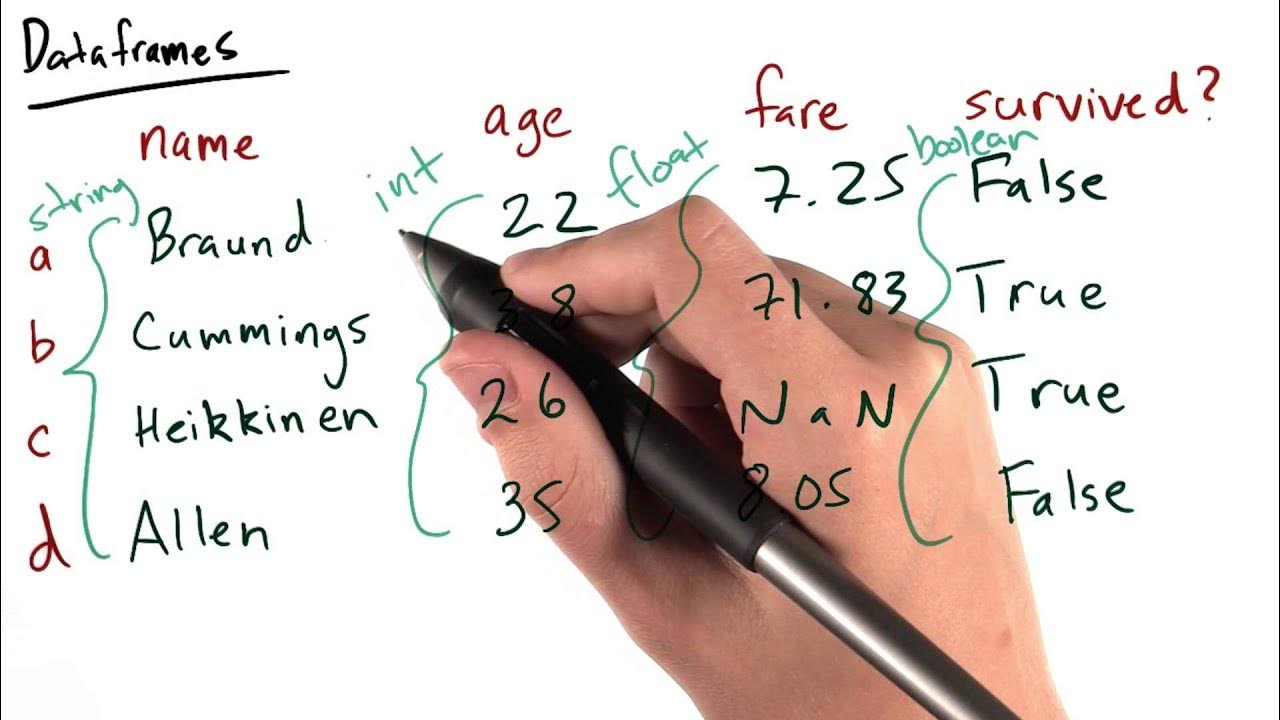 Dataframes
name age fare survived?
string int float boolean
a Braund 22 7.25 False
b Cummings 38 71.83 True
c Heikkinen 26 NaN True
d Allen 35 8.05 False